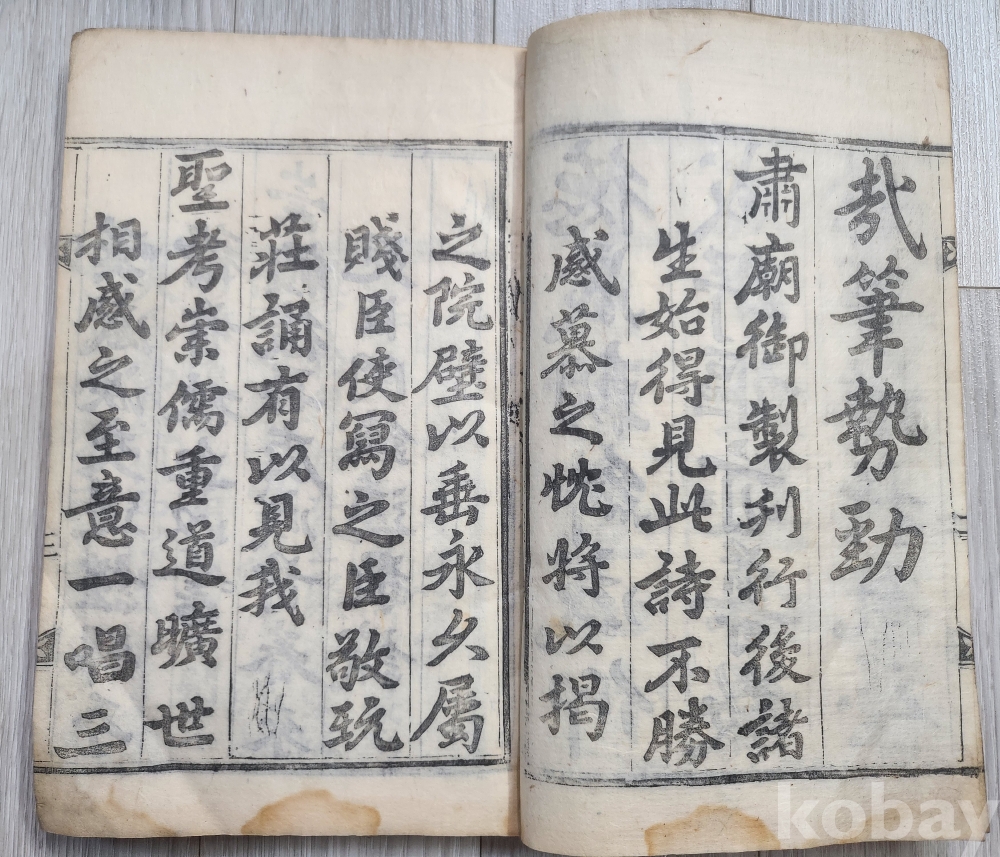 哉筆勢勁
肅廟御製刋行後諸
生始得見此詩不勝
感慕之忱將以揭
之院壁以垂永久屬
賤臣使寫之臣敬玩
莊誦有以見我
聖考崇儒重道曠世
相感之至意一唱三
kobay